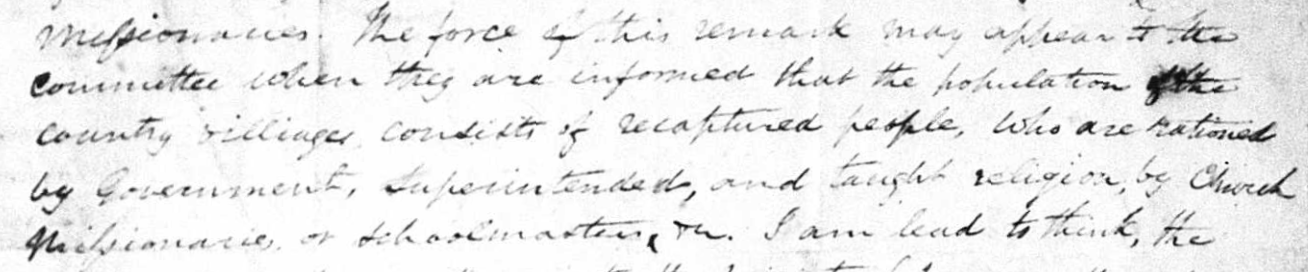 missionaries. The force of this remark may appear to the
committee when they are informed that the population of the
country villiages, consists of recaptured people, who are rationed
by Government, superintended, and taught religion, by Church
Missionaries, or schoolmasters, &c. I am lead to think, the